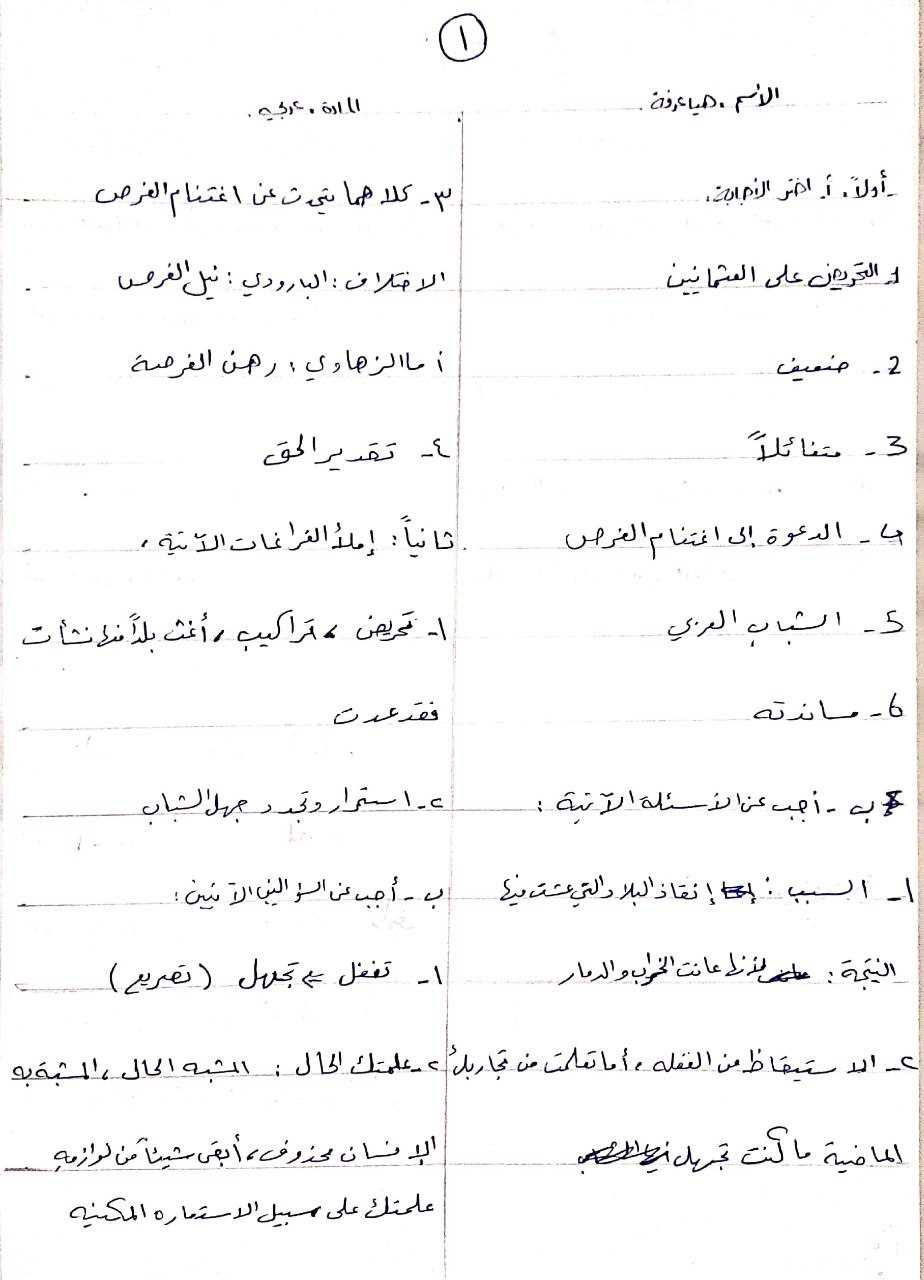 ١
الاسم، هيا عرفة
المادة، عربي
أولاً، أ. اختر الإجابة،
1- التحريض على العثمانيين
2- ضعيف
3- متفائلاً
4- الدعوة إلى اغتنام الفرص
5- الشباب العربي
6- مساندته
ب - أجب عن الأسئلة الآتية :
١- السبب : إنقاذ البلاد التي عشت فيها
النتيجة : لأنها عانت الخراب والدمار
٢- الاستيقاظ من الغفله ، أما تعلمت من تجاربك
الماضية ما كنت تجهل
٣- كلاهما يتحدث عن اغتنام الفرص
الاختلاف : البارودي : نيل الفرص
أما الزهاوي : رهن الفرصة
٤- تقدير الحق
ثانياً : إملأ الفراغات الآتية ،
١- تحريض ، تراكيب ، أغث بلداً منها نشأت
فقد عدت
٢- استمرار وتجدد جهل الشباب
ب - أجب عن السؤالين الآتيين :
١- تغفل تجهل (تصريع)
٢- علمتك الحال : المشبه الحال ، المشبة به
الإنسان محذوف ، أبقى شيئاً من لوازمه
علمتك على سبيل الاستعاره المكنيه